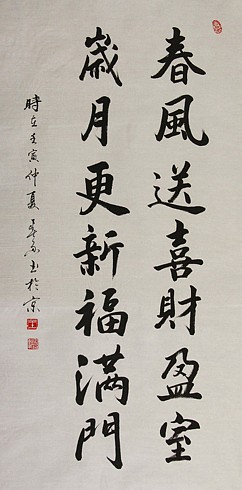 春風送喜財盈室
歲月更新福滿門
時在壬寅仲夏
书於京